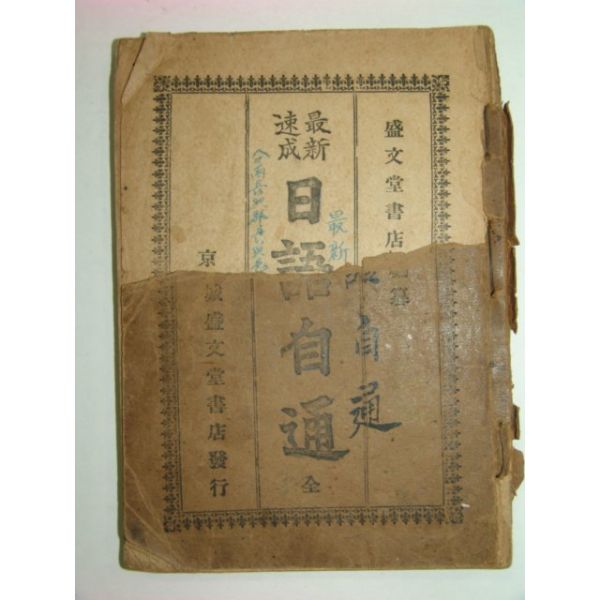 盛文堂書店編纂
最新
速成
日語自通
全
京城盛文堂書店發行
最新
自通